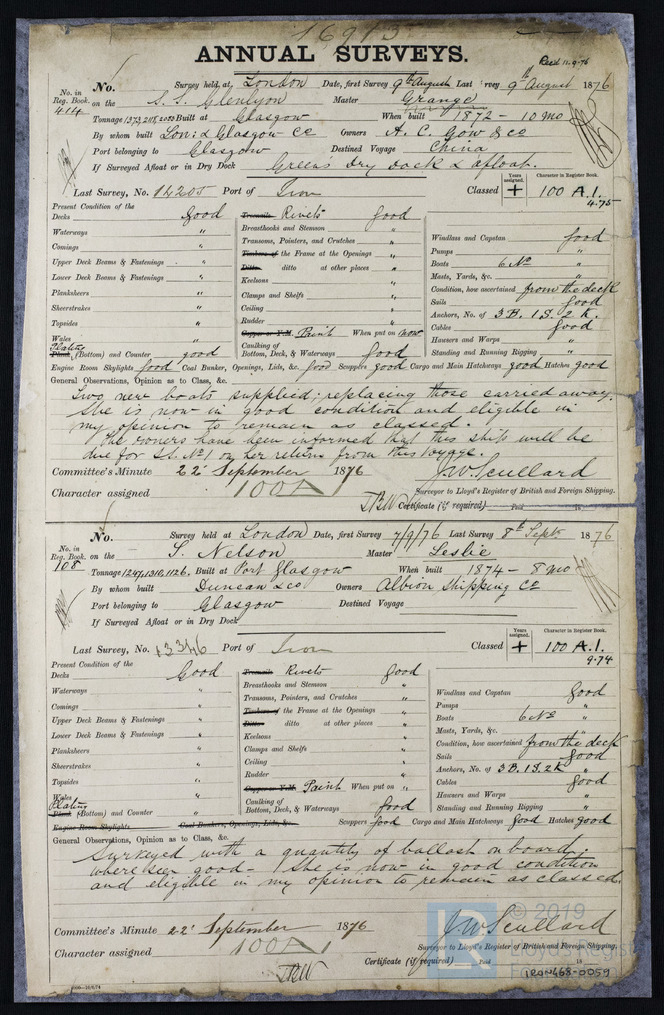 16913
ANNUAL SURVEYS.
Recd 11.9.76
No. Survey held at London Date, first Survey 9th August Last Survey 9th August 1876
No. in Reg. Book. 414 on the S.S. Glenlyon Master Grange
Tonnage 1373, 2118, 2000 Built at Glasgow When built 1872 - 10 mo
By whom built Lon: & Glasgow Co Owners A. C. Gow & Co
Port belonging to Glasgow Destined Voyage China
If Surveyed Afloat or in Dry Dock Green's Dry Dock & afloat.
Last Survey, No. 14205 Port of Iron Classed Years assigned. + Character in Register Book. 100 A.1. 4.75
Present Condition of the
Decks good
Waterways "
Comings "
Upper Deck Beams & Fastenings "
Lower Deck Beams & Fastenings "
Planksheers "
Sheerstrakes "
Topsides "
Wales "
Plating Plank (Bottom) and Counter good
Treenails Rivets good
Breasthooks and Stemson "
Transoms, Pointers, and Crutches "
Timbers of the Frame at the Openings "
Ditto ditto at other places "
Keelsons "
Clamps and Shelfs "
Ceiling "
Rudder "
Copper or Y.M. Paint When put on now
Caulking of Bottom, Deck, & Waterways good
Windlass and Capstan good
Pumps "
Boats 6 No "
Masts, Yards, &c. "
Condition, how ascertained from the deck
Sails good
Anchors, No. of 3 B. 1 S. 2 K.
Cables good
Hawsers and Warps "
Standing and Running Rigging "
Engine Room Skylights good Coal Bunker, Openings, Lids, &c. good Scuppers good Cargo and Main Hatchways good Hatches good
General Observations, Opinion as to Class, &c.
Two new boats supplied; replacing those carried away.
She is now in good condition and eligible in
my opinion to remain as classed.
The owners have been informed that this ship will be
due for S.S. No 1 on her return from this Voyage.
Committee's Minute 22 September 1876 J.W. Scullard
Character assigned 100A1 Surveyor to Lloyd's Register of British and Foreign Shipping.
Certificate (if required) Paid 18
No. Survey held at London Date, first Survey 7/9/76 Last Survey 8th Sept. 1876
No. in Reg. Book. 108 on the S. Nelson Master Leslie
Tonnage 1247, 1310, 1126. Built at Port Glasgow When built 1874 - 8 mo
By whom built Duncan & Co Owners Albion Shipping Co
Port belonging to Glasgow Destined Voyage
If Surveyed Afloat or in Dry Dock
Last Survey, No. 13346 Port of Iron Classed Years assigned. + Character in Register Book. 100 A.1. 9.74
Present Condition of the
Decks Good
Waterways "
Comings "
Upper Deck Beams & Fastenings "
Lower Deck Beams & Fastenings "
Planksheers "
Sheerstrakes "
Topsides "
Wales "
Plating Plank (Bottom) and Counter "
Treenails Rivets good
Breasthooks and Stemson "
Transoms, Pointers, and Crutches "
Timbers of the Frame at the Openings "
Ditto ditto at other places "
Keelsons "
Clamps and Shelfs "
Ceiling "
Rudder "
Copper or Y.M. Paint When put on "
Caulking of Bottom, Deck, & Waterways good
Windlass and Capstan good
Pumps "
Boats 6 No "
Masts, Yards, &c. "
Condition, how ascertained from the deck
Sails good
Anchors, No. of 3 B. 1 S. 2 K
Cables good
Hawsers and Warps "
Standing and Running Rigging "
Engine Room Skylights Coal Bunkers, Openings, Lids, &c. Scuppers good Cargo and Main Hatchways good Hatches good
General Observations, Opinion as to Class, &c.
Surveyed with a quantity of ballast on board;
where seen good - She is now in good condition
and eligible in my opinion to remain as classed.
Committee's Minute 22 September 1876 J.W. Scullard
Character assigned 100A1 Surveyor to Lloyd's Register of British and Foreign Shipping.
Certificate (if required) Paid 18
© 2019
Lloyd's Register
IRON468-0059